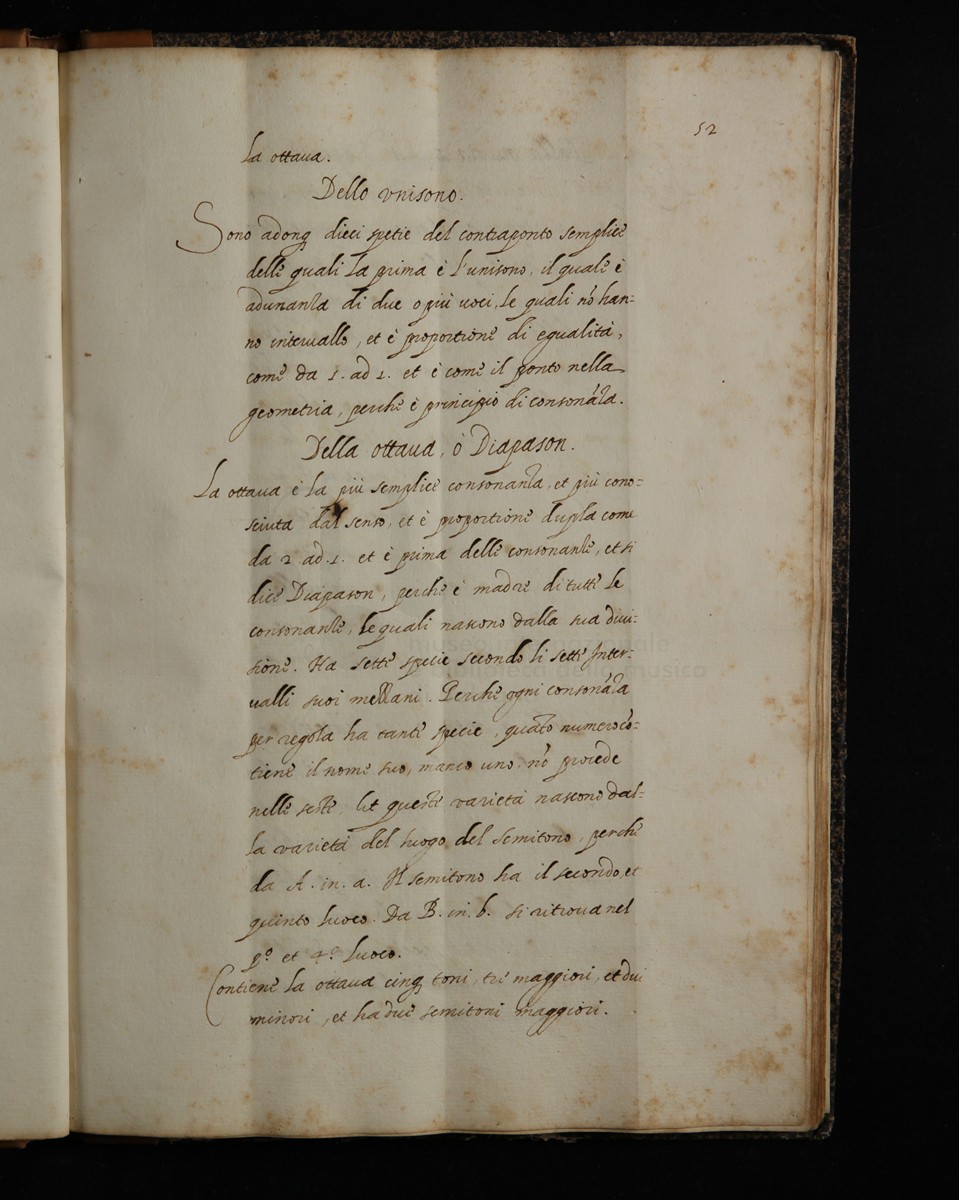 52
La ottaua.
Dello vnisono.
Sono adonq dieci spetie del contraponto semplice
delle quali la prima è l'unisono, il quale è
adunanza di due o più uoci, le quali nõ han=
no interuallo, et è proportione di egualità,
come da 1. ad 1. et è come il ponto nella
geometria, perche è principio di consonãza.
Della ottaua, ò Diapason.
La ottaua è la più semplice consonanza, et più cono=
sciuta dal senso, et è proportione dupla come
da 2. ad. 1. et è prima delle consonanze, et si
dice Diapason, perche è madre di tutte le
consonanze, le quali nascono dalla sua diui=
sione. Ha sette specie secondo li sette Inter=
ualli suoi mezzani. Perche ogni consonãza
per regola ha tante specie, quãto numero cõ=
tiene il nome suo, manco uno. nõ procede
nelle seste, Et queste varietà nascono dal=
la varietà del luogo del semitono, perche
da A. in. a. Il semitono ha il secondo, et
quinto luoco. Da B. in. b. si ritroua nel
p.º et 4.º luoco.
Contiene la ottaua cinq toni, tre maggiori, et dui
minori, et ha due semitoni maggiori.